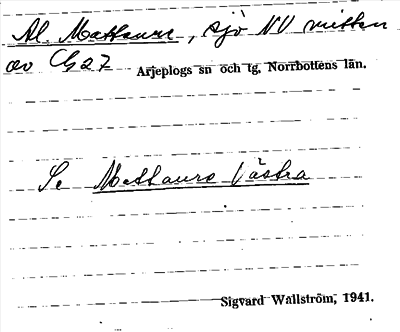 Al. Mattaure, sjö NV mitten
av G27 Arjeplogs sn och tg, Norrbottens län.
Se Mattaure Västra
Sigvard Wallström, 1941.